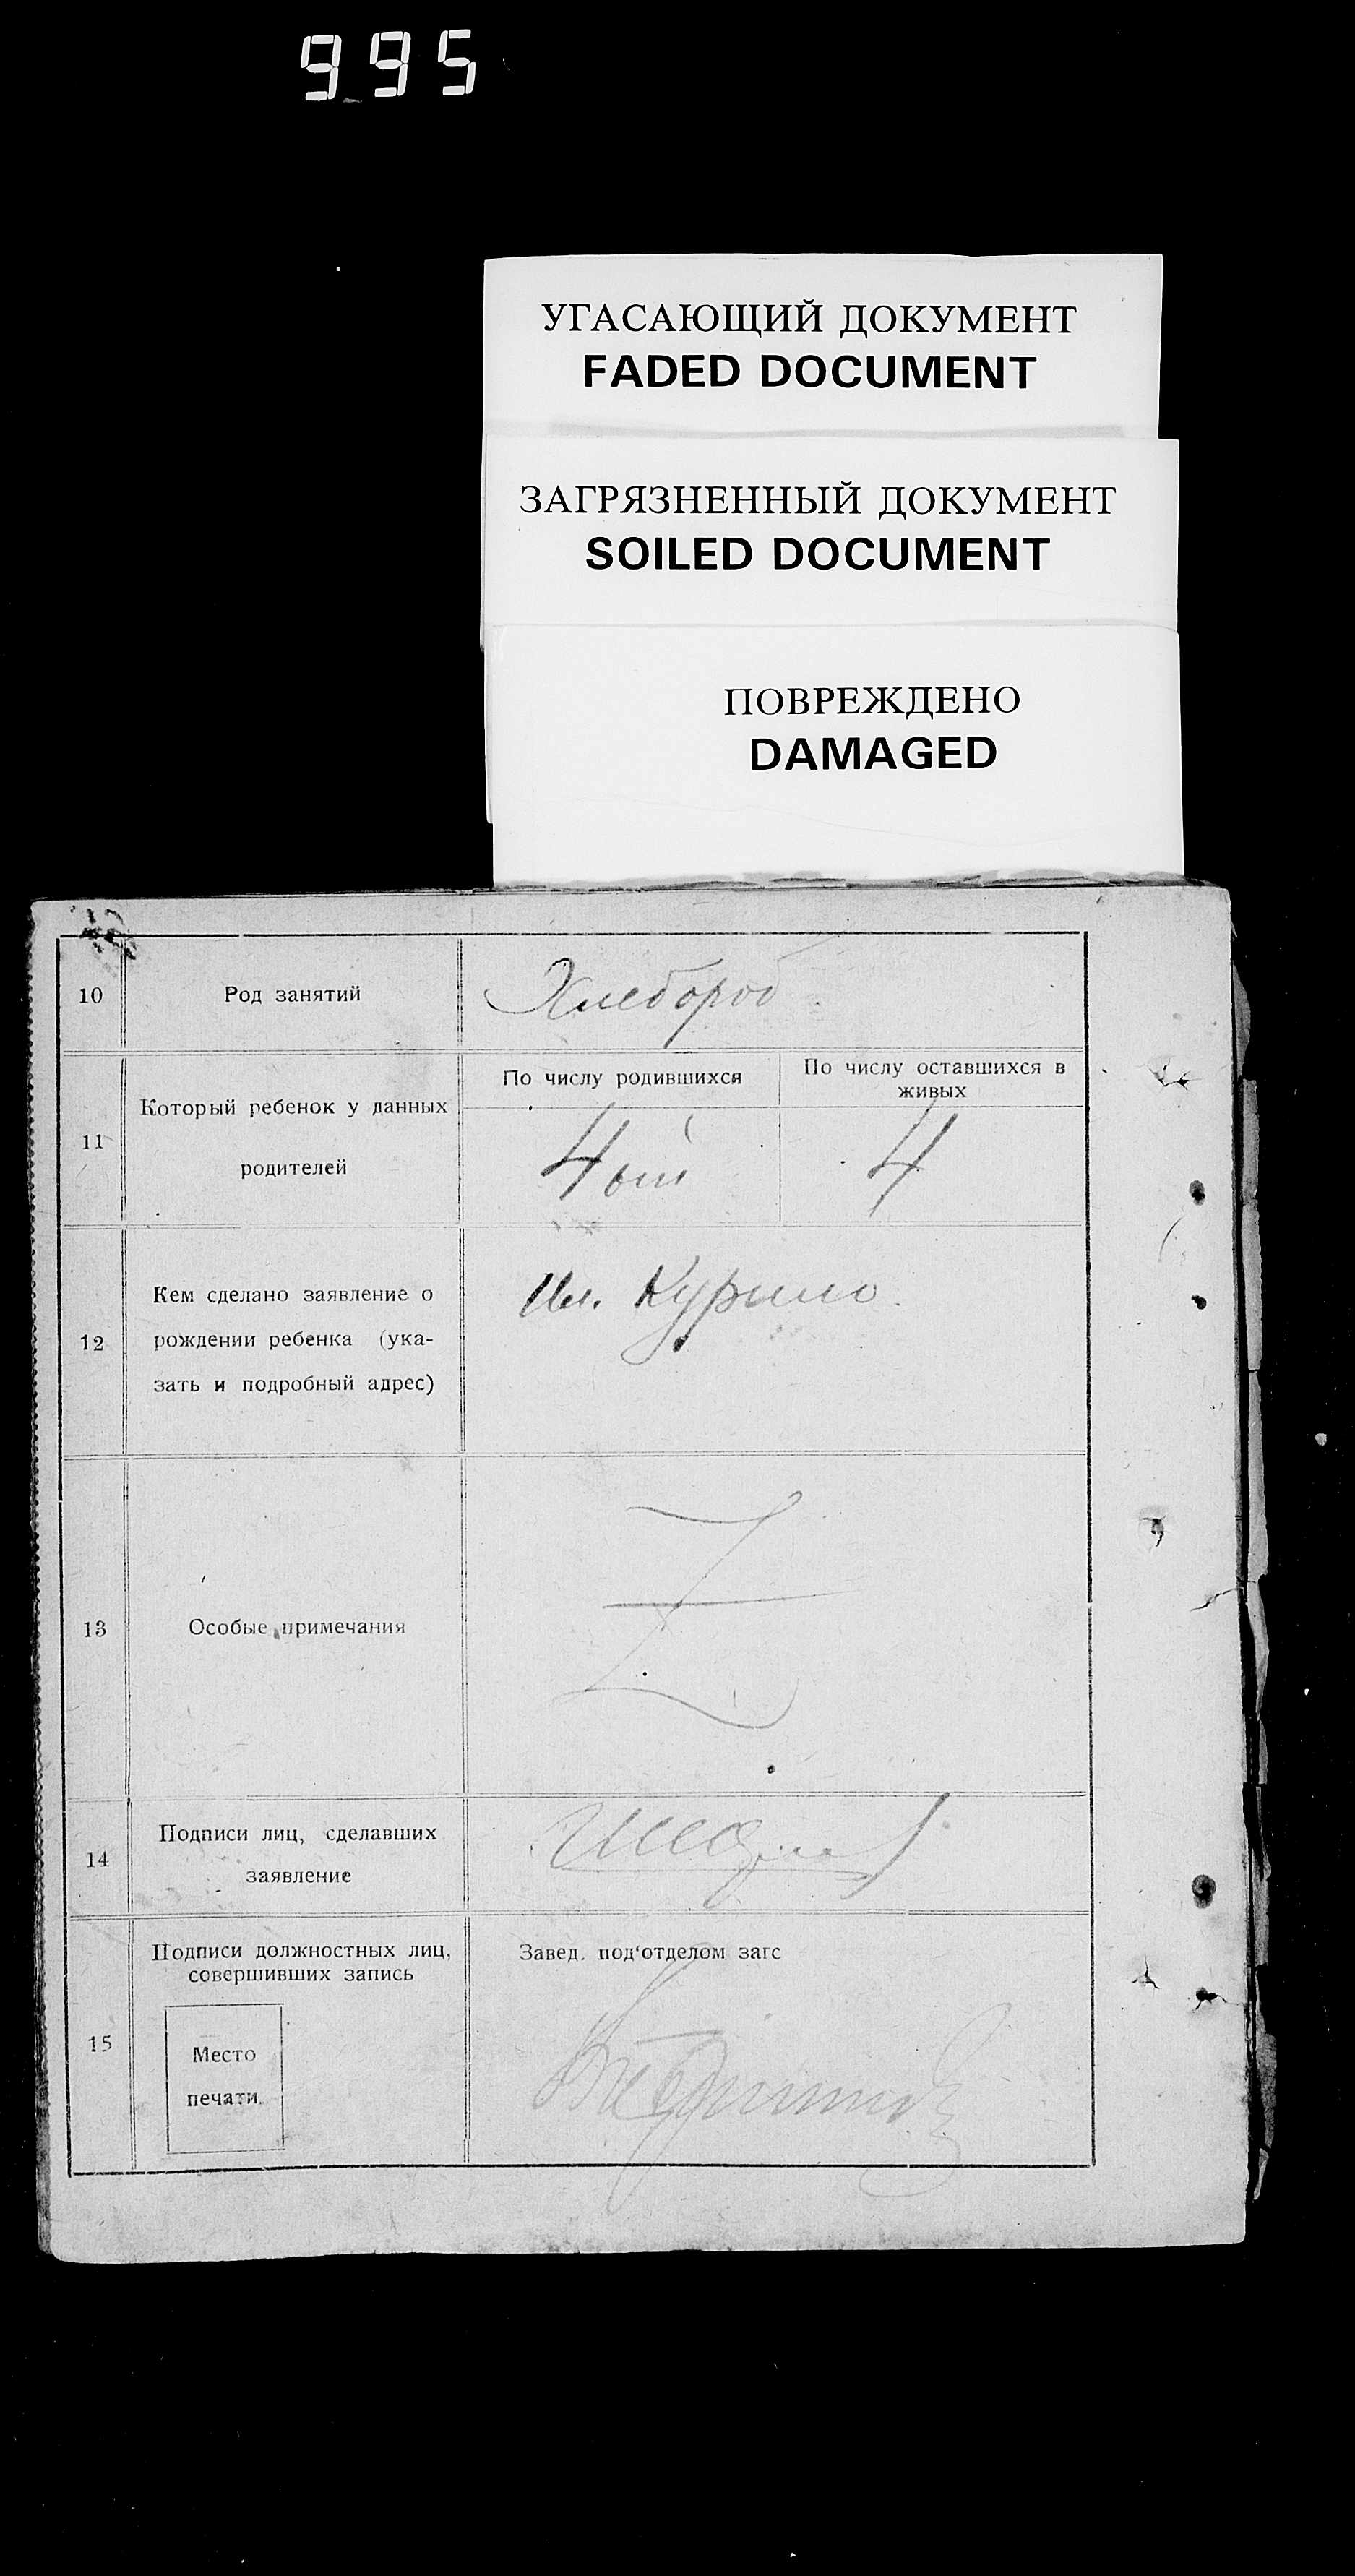 995
УГАСАЮЩИЙ ДОКУМЕНТ
FADED DOCUMENT
ЗАГРЯЗНЕННЫЙ ДОКУМЕНТ
SOILED DOCUMENT
ПОВРЕЖДЕНО
DAMAGED
10
Род занятий
Хлебороб
11
Который ребенок у данных
родителей
По числу родившихся
По числу оставшихся в
живых
4 ый
4
12
Кем сделано заявление о
рождении ребенка (ука-
зать и подробный адрес)
Ив. Курило
13
Особые примечания
Z
14
Подписи лиц, сделавших
заявление
15
Подписи должностных лиц,
совершивших запись
Место
печати.
Завед. под‘отделом загс